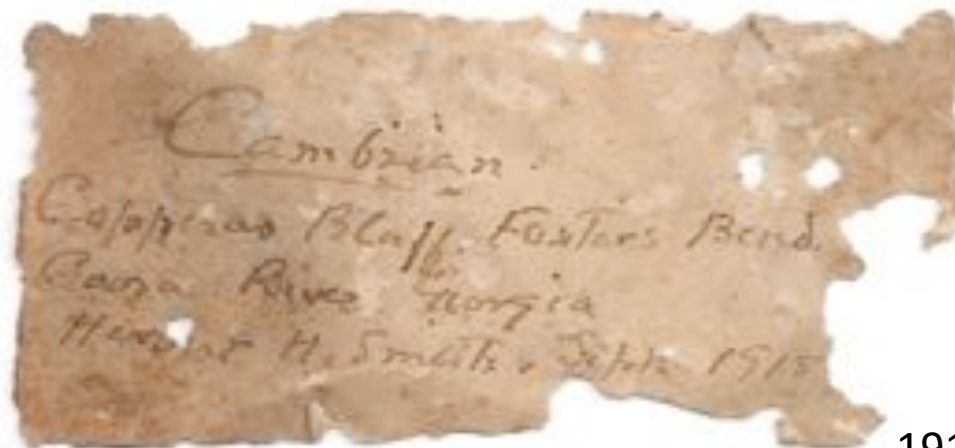 Cambrian.
Copperas Bluff. Fosters Bend.
Coosa River Georgia
Herbert H. Smith. Sept. 1915
191